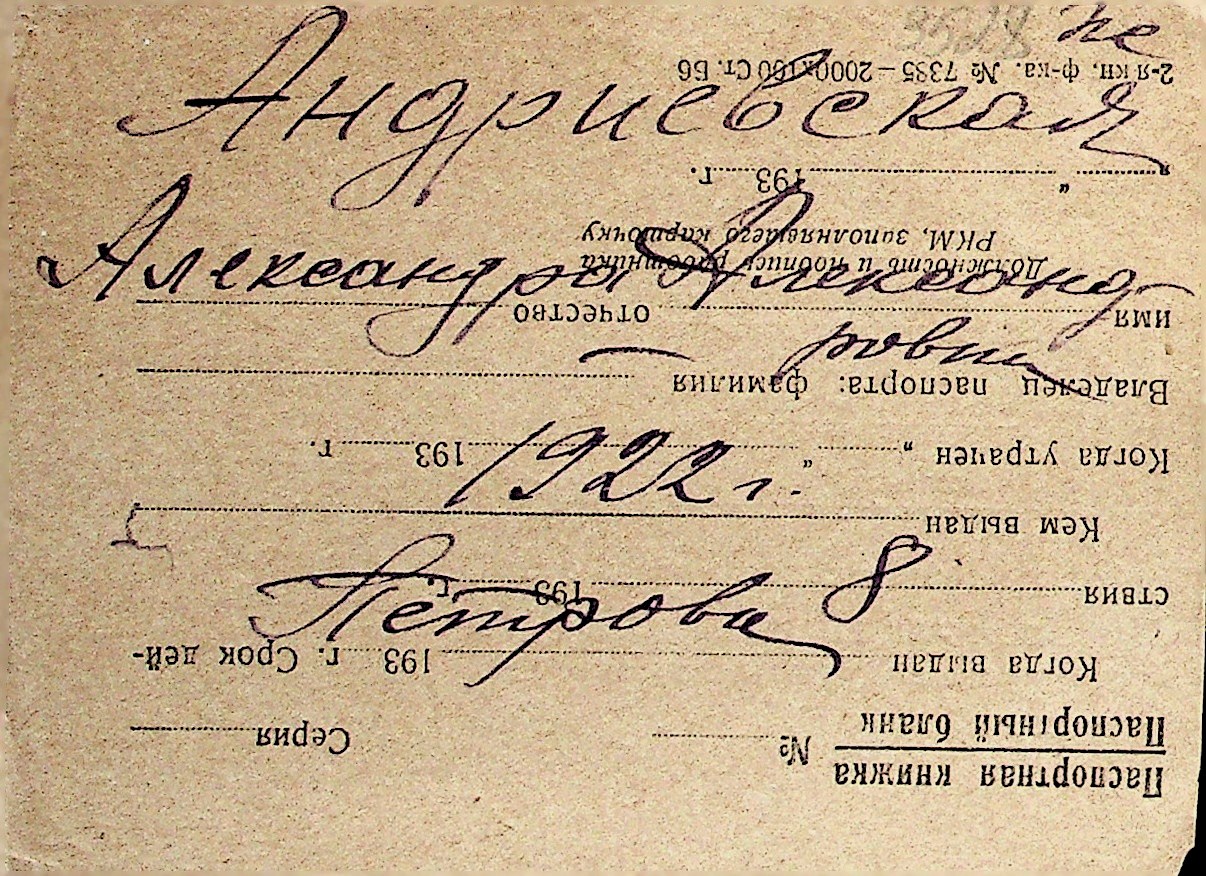 не
Андриевская
Александра Александ-
ровна
1922 г.
Петрова 8
Паспортная книжка
Паспортный бланк
№ Серия
Когда выдан 193 г. Срок дей-
ствия 193 г.
Кем выдан
Когда утрачен „ “ 193 г.
Владелец паспорта: фамилия
имя отчество
Должность и подпись работника
РКМ, заполнявшего карточку
„ “ 193 г.
2-я кн. ф-ка. № 7385—2000х100 Ст. Б6